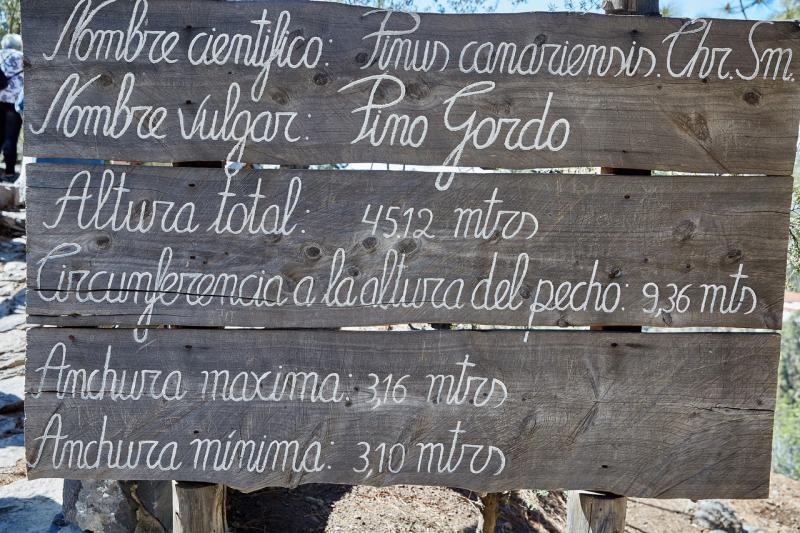 Nombre científico: Pinus canariensis. Chr. Sm.
Nombre vulgar: Pino Gordo
Altura total: 45.12 mtrs
Circunferencia a la altura del pecho: 9,36 mts
Anchura maxima: 3,16 mtrs
Anchura mínima: 3,10 mtrs